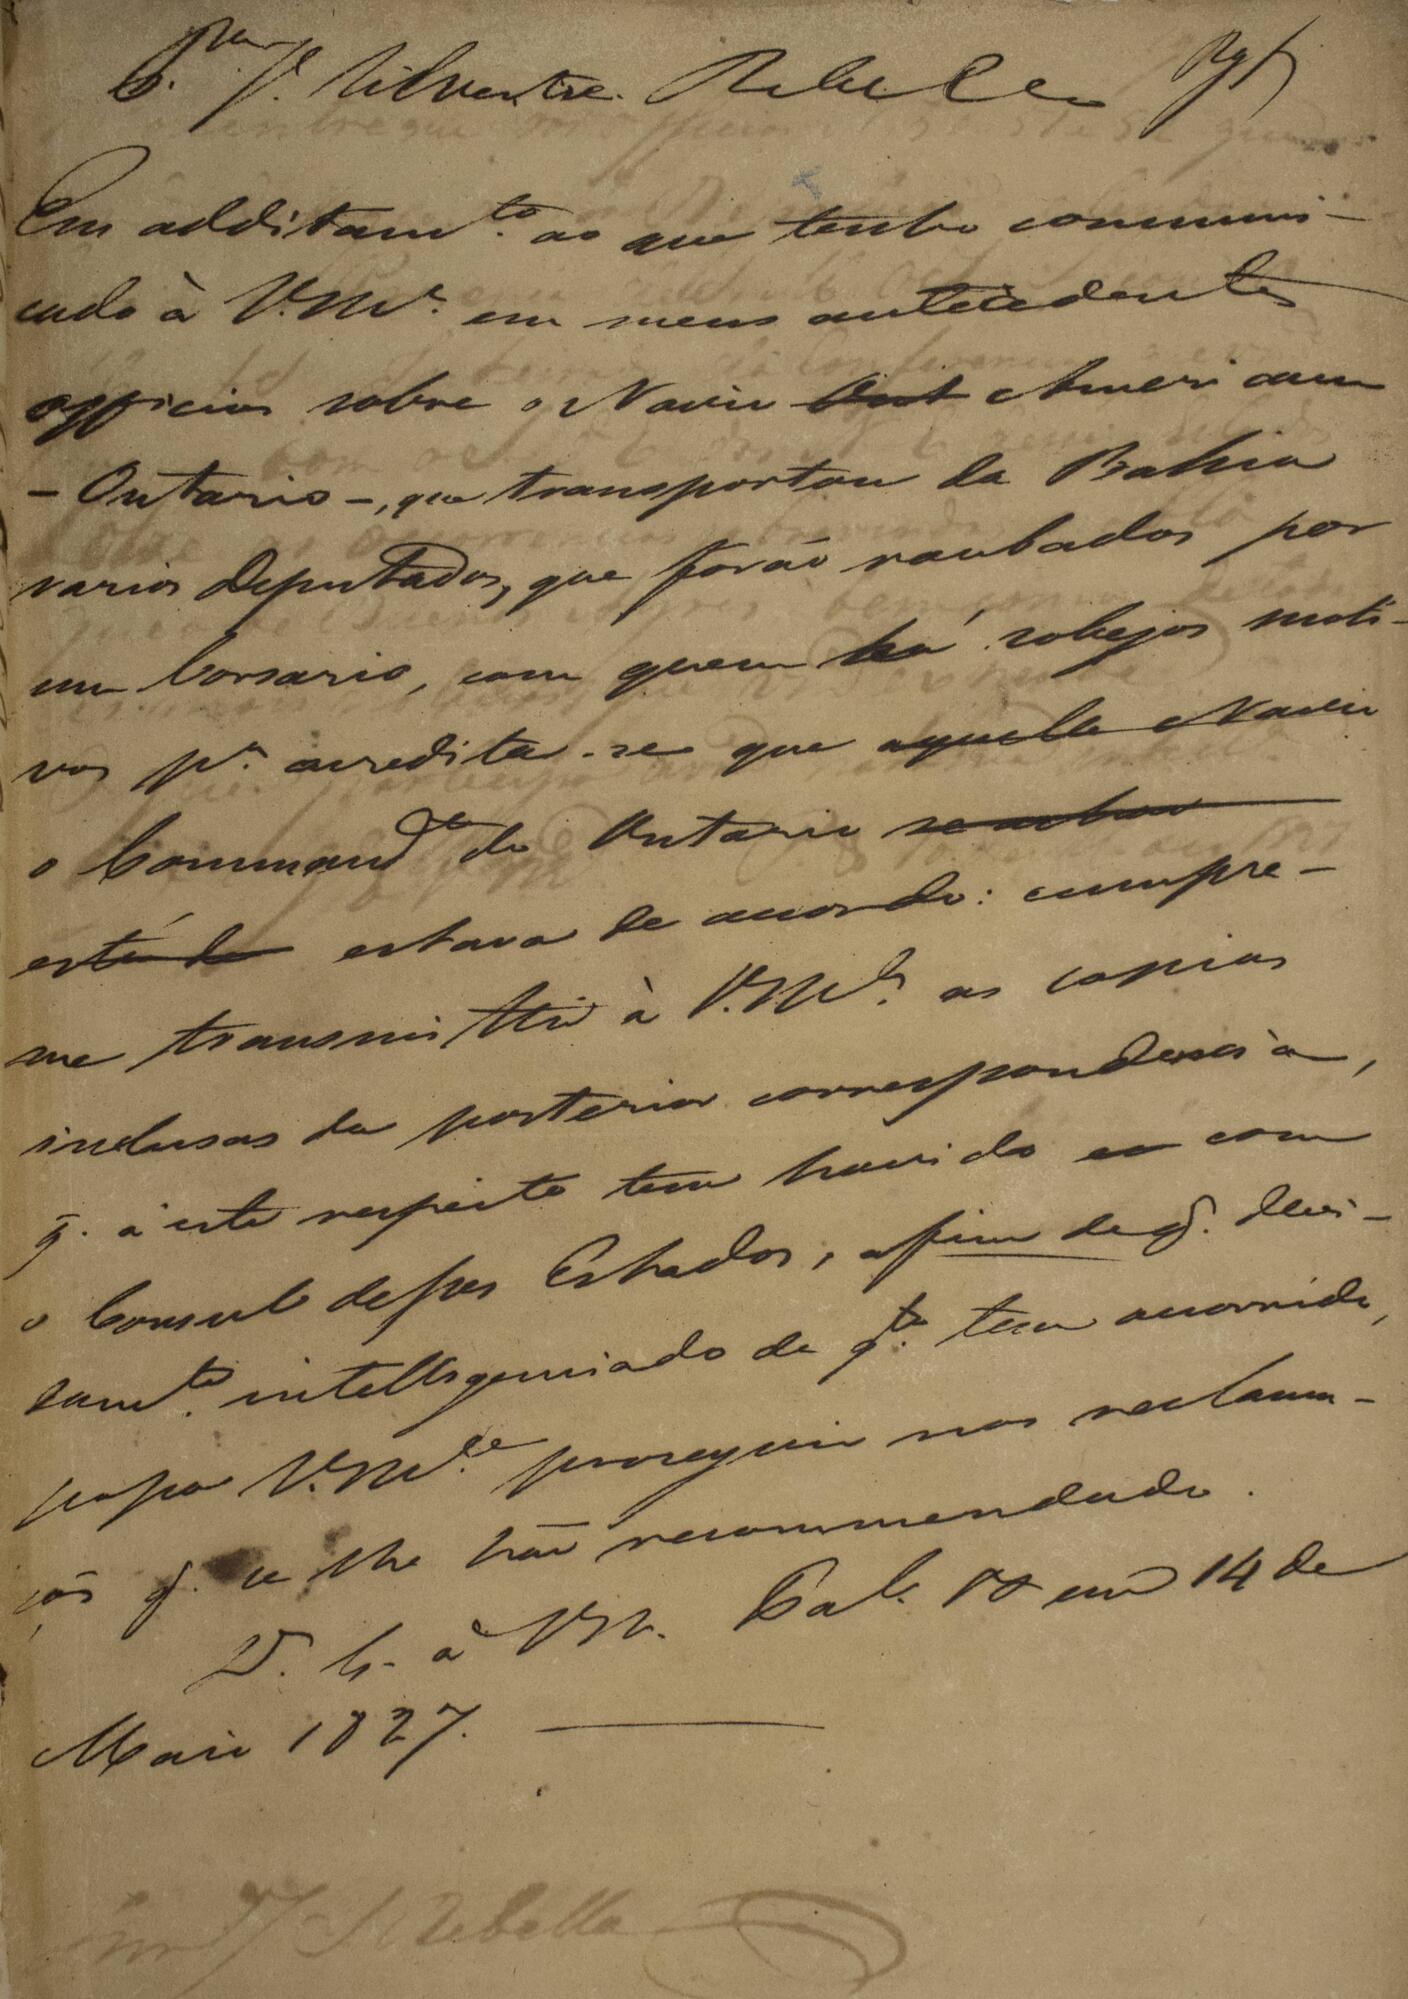 P.ª J.e Silvestre Rebello Rgt
Em additam.to ao que tenho communi-
cado à V.M.ce em meus antecedentes
officios sobre o Navio Americano
- Ontario -, que transportou da Bahia
varios Deputados, que forão roubados por
um Corsario, com quem há sobejos moti-
vos p.ª acredita-se que aquelle Navio
o Command.e do Ontario se achava
está de estava de accordo: cumpre-
me transmittir à V.M.ce as copias
inclusas da posterior correspondencia,
q. á este respeito tem havido com
o Consul desses Estados, afim de q. devi-
dam.te intelligenciado de q.to tem occorrido,
possa V.M.ce proseguir nas reclama-
çõs q. se lhe hão recommendado.
D. G. à V.M. Pal.º em 14 de
Maio 1827.
J. S. Rebello